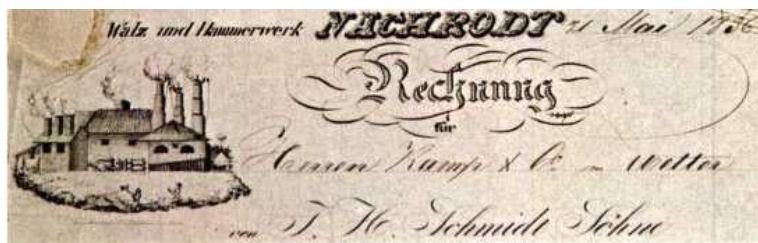 Walz und Hammerwerk NACHRODT 21 Mai 1836
Rechnung
für
Herren Kamp & Co. in Wetter
von T. H. Schmidt Söhne